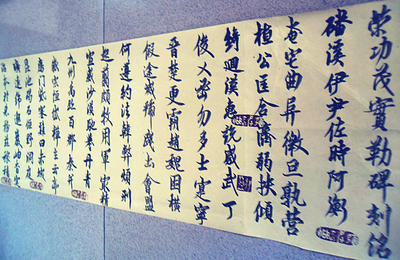 策功茂實勒碑刻銘
磻溪伊尹佐時阿衡
奄宅曲阜微旦孰營
桓公匡合濟弱扶傾
綺迴漢惠說感武丁
俊乂密勿多士寔寧
晉楚更霸趙魏困橫
假途滅虢踐土會盟
何遵約法韓弊煩刑
起翦頗牧用軍最精
宣威沙漠馳譽丹青
九州禹跡百郡秦并
嶽宗恒岱禪主云亭
雁門紫塞雞田赤城
昆池碣石鉅野洞庭
曠遠綿邈巖岫杳冥
治本於農務茲稼穡